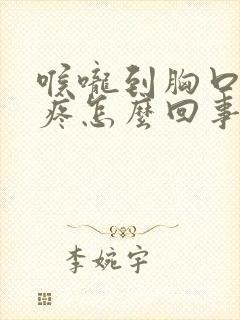 喉嚨到胸口
疼怎麼回事
李婉宇